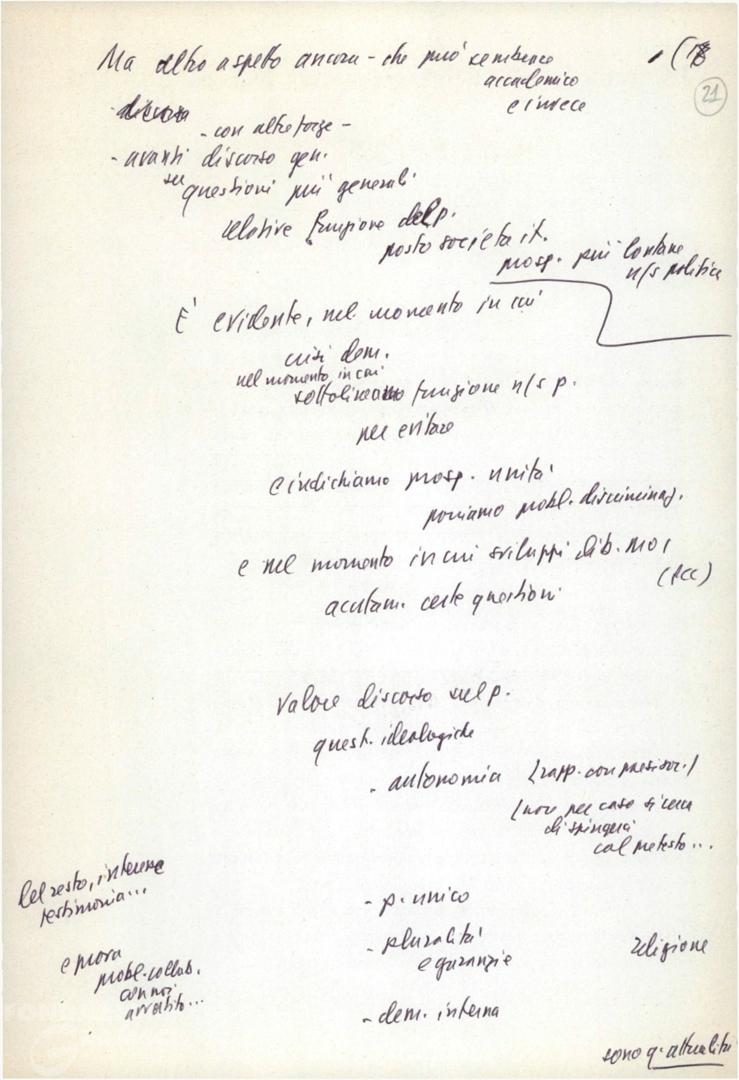 Ma altro aspetto ancora - che può sembrare
accademico
e invece
(18
21
- discorso
- con altre forze -
- avanti discorso gen.
su questioni più generali
relative funzione del p.
posto società it.
prosp. più lontane
n/s politica
E' evidente, nel momento in cui
crisi dem.
nel momento in cui
sottolineamo funzione n/s p.
per evitare
e indichiamo prosp. unità
poniamo probl. discriminaz.
e nel momento in cui sviluppi dib. mo,
(PCC)
acutam. certe questioni
Valore discorso sul p.
quest. ideologiche
- autonomia (rapp. con paesi soc.)
(non per caso si cerca
di spingerci
col pretesto...
Del resto, interesse
testimonia...
- p. unico
- pluralità
e garanzie
religione
e prova
probl. collab.
con noi
avvertito...
- dem. interna
sono q. attualità